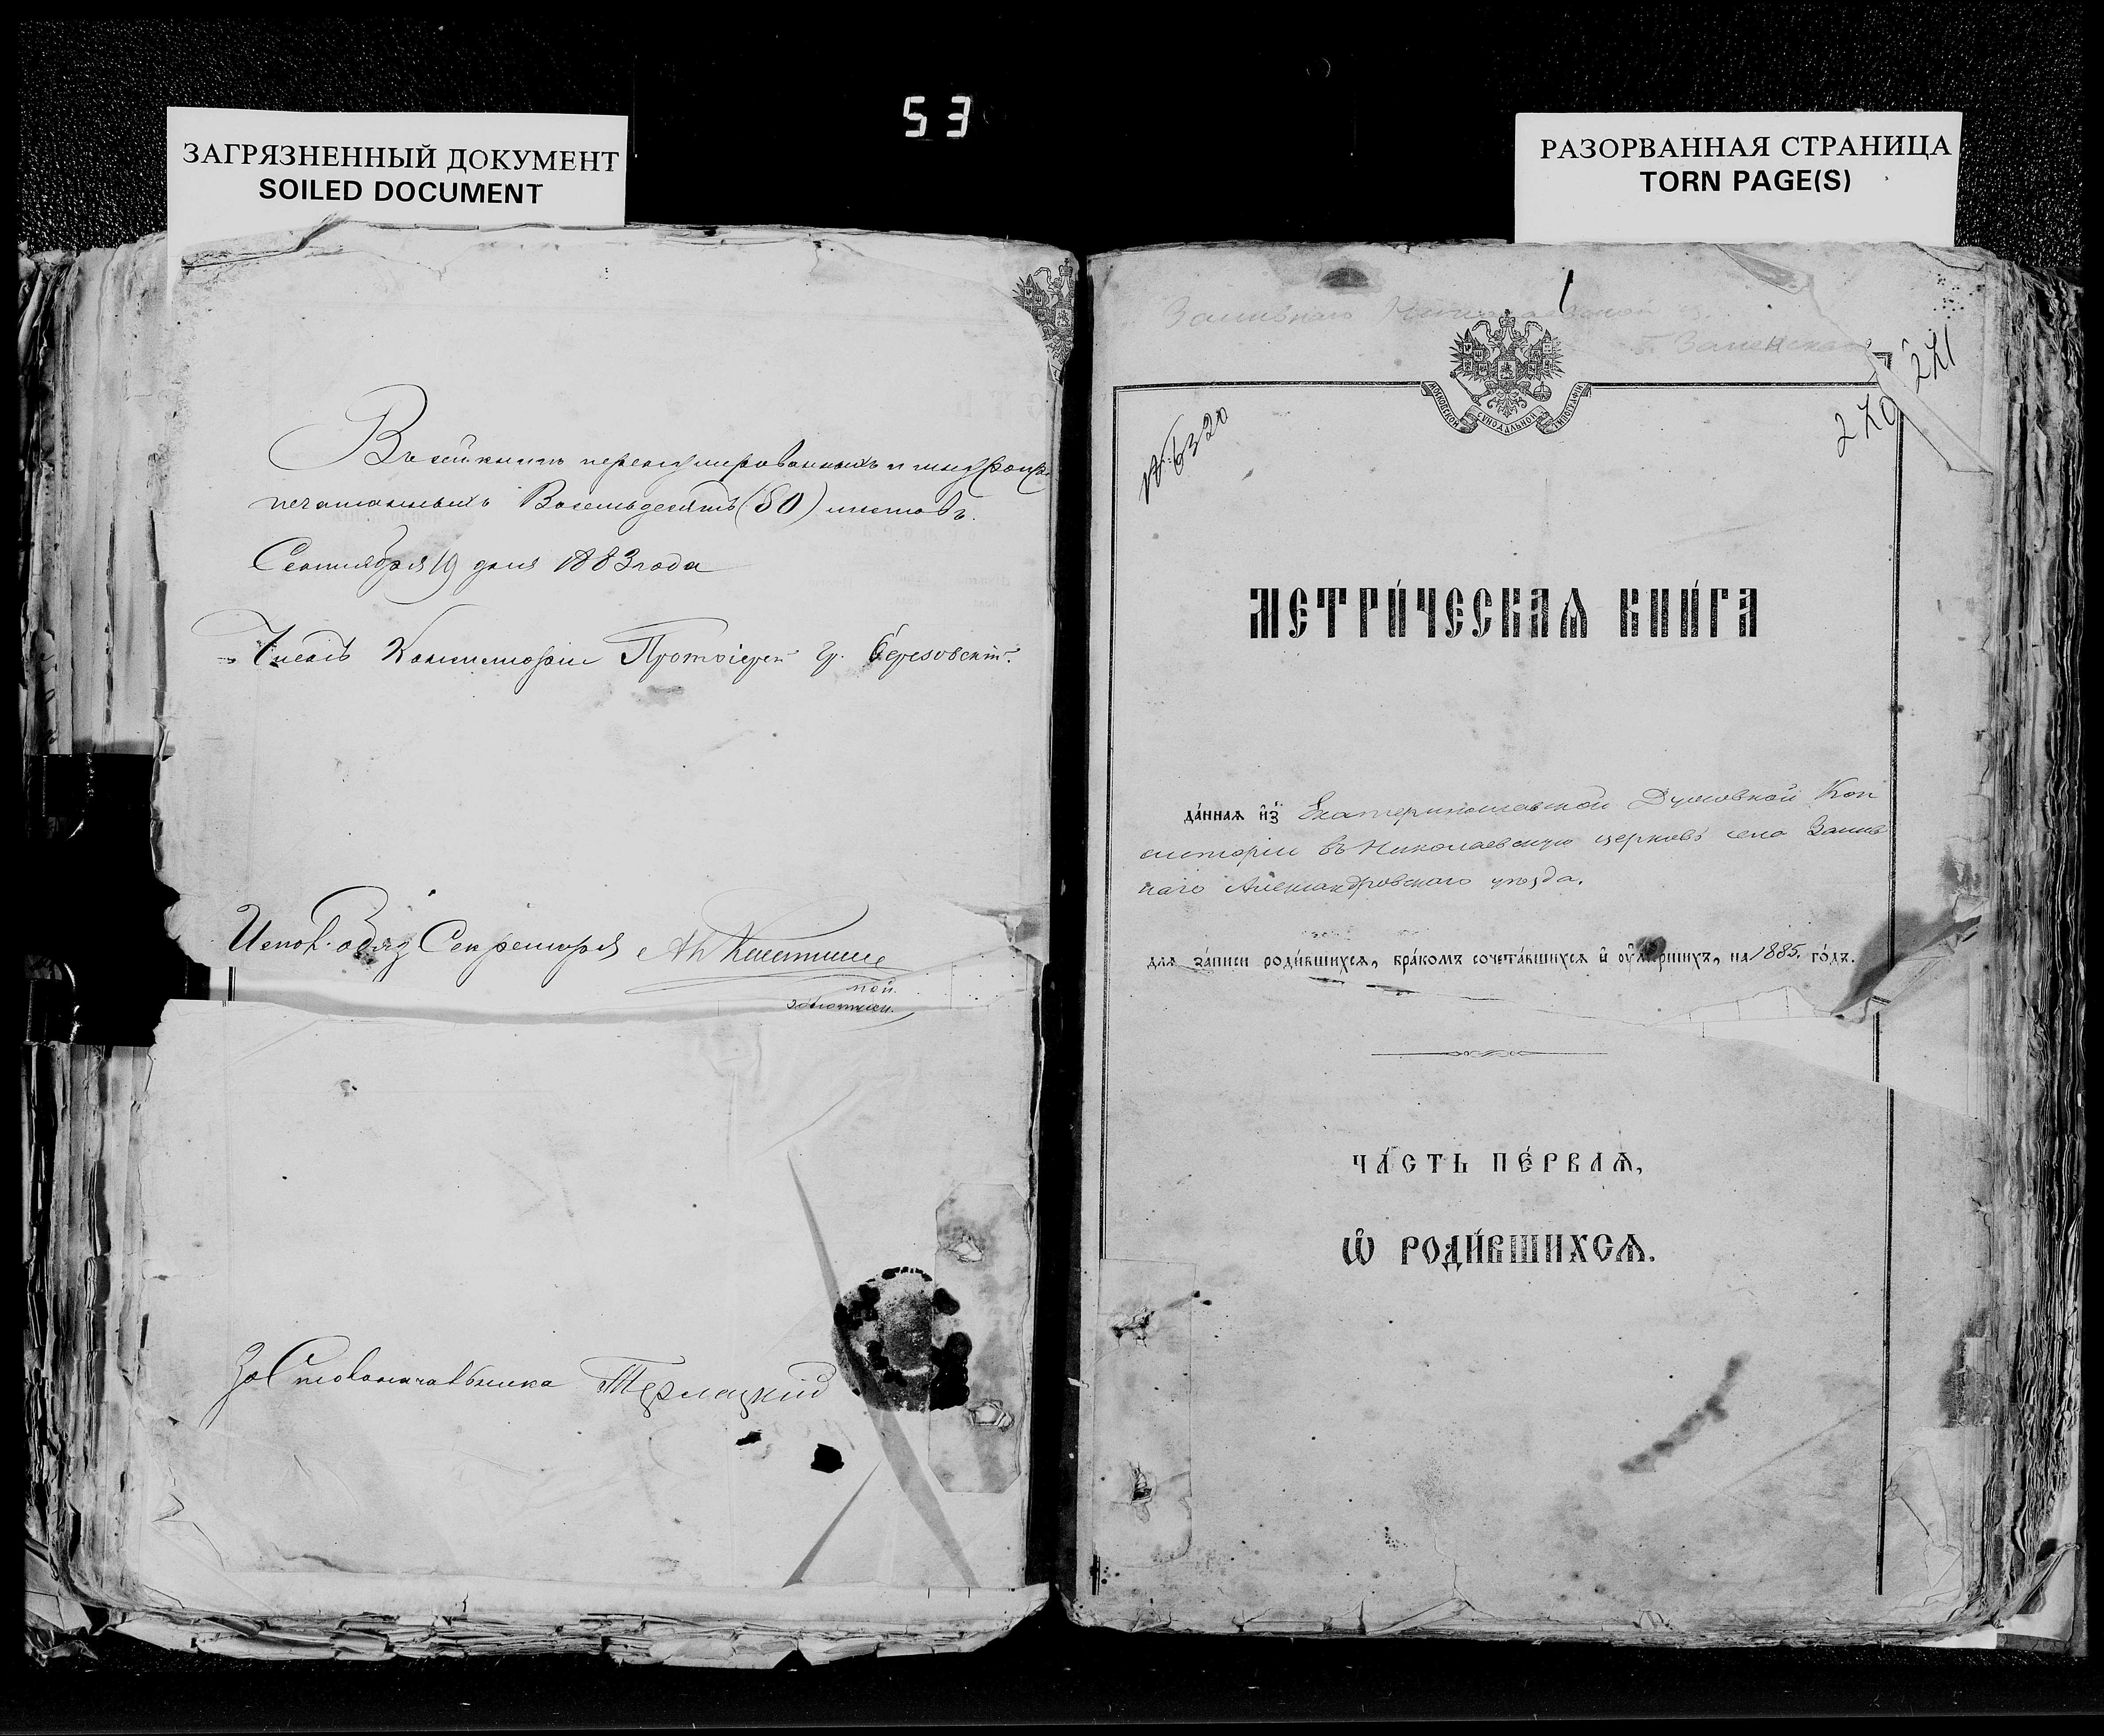 53
ЗАГРЯЗНЕННЫЙ ДОКУМЕНТ
SOILED DOCUMENT
РАЗОРВАННАЯ СТРАНИЦА
TORN PAGE(S)
Въ сей книгѣ перенумерованныхъ и шнуропри-
печатанныхъ Восемьдесятъ (80) листовъ.
Сентября 19 дня 1883 года
Членъ Консисторіи Протоіерей Гр. Березовскій.
Испол. обяз Секретаря
За Столоначальника
1
271
270
МОСКОВСКОЙ СѴНОДАЛЬНОЙ ТИПОГРАФІИ
№ 6320
МЕТРИ́ЧЕСКАѦ КНИ́ГА
да́ннаѧ и҆з̾ Екатеринославской Духовной Кон
систоріи въ Николаевскую церковь села Залив
наго Александровскаго уѣзда.
для за́писи роди́вшихсѧ, бра́комъ сочета́вшихсѧ и҆ ᲂу҆ме́ршихъ, на 1885. го́дъ.
ЧА́СТЬ ПЕ́РВАѦ,
Ѽ РОДИ́ВШИХСѦ.